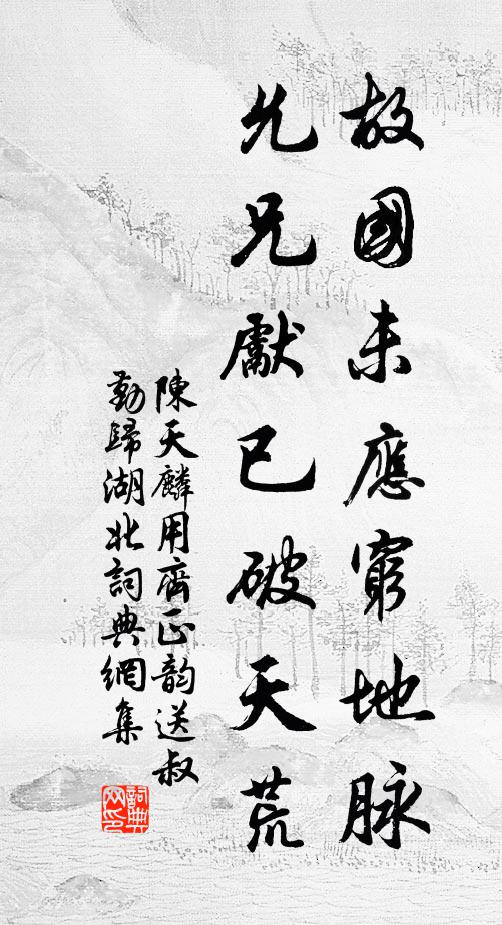 故國未應窮地脉
允兄獻已破天荒
陳天麟用齊正韵送叔
勤歸湖北詞典網集
詞典網印